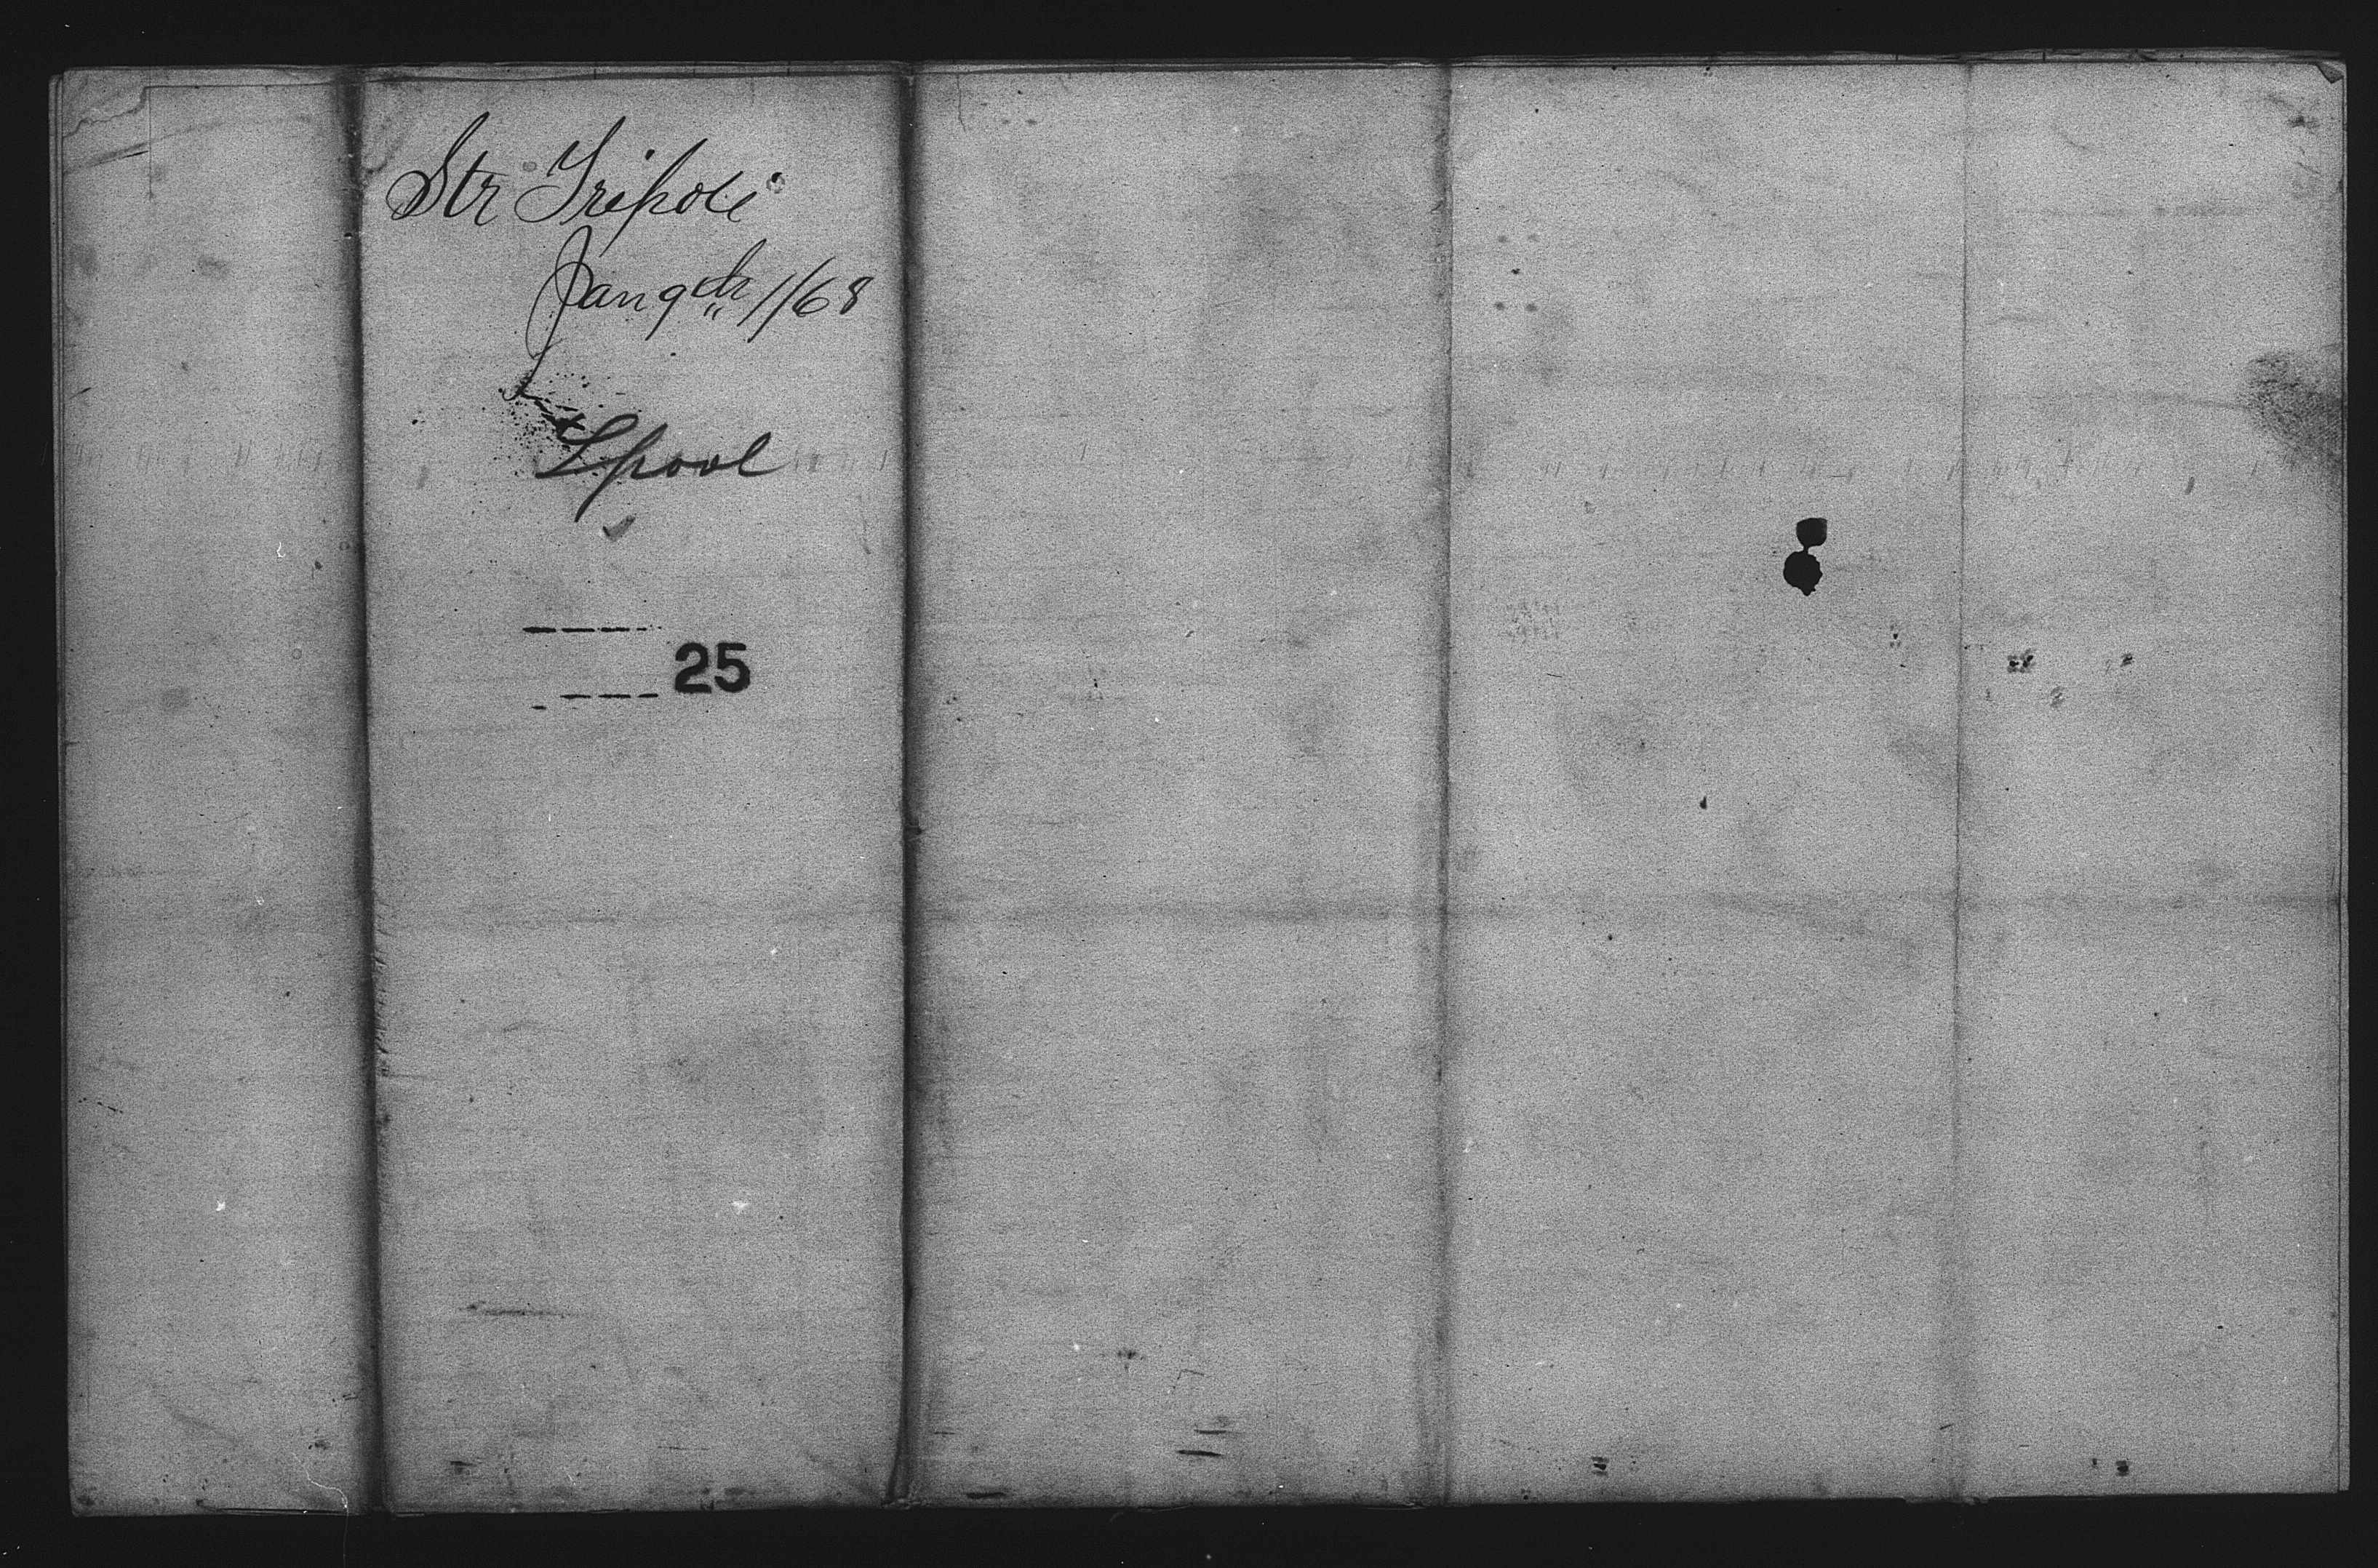 Str Tripoli
Jan 9th 1/68
Lpool
25